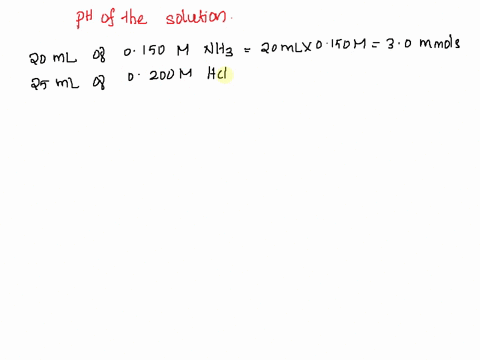 pH of the solution.
20 mL of 0.150 M NH3 = 20 mL X 0.150 M = 3.0 mmols
25 mL of 0.200 M HCl